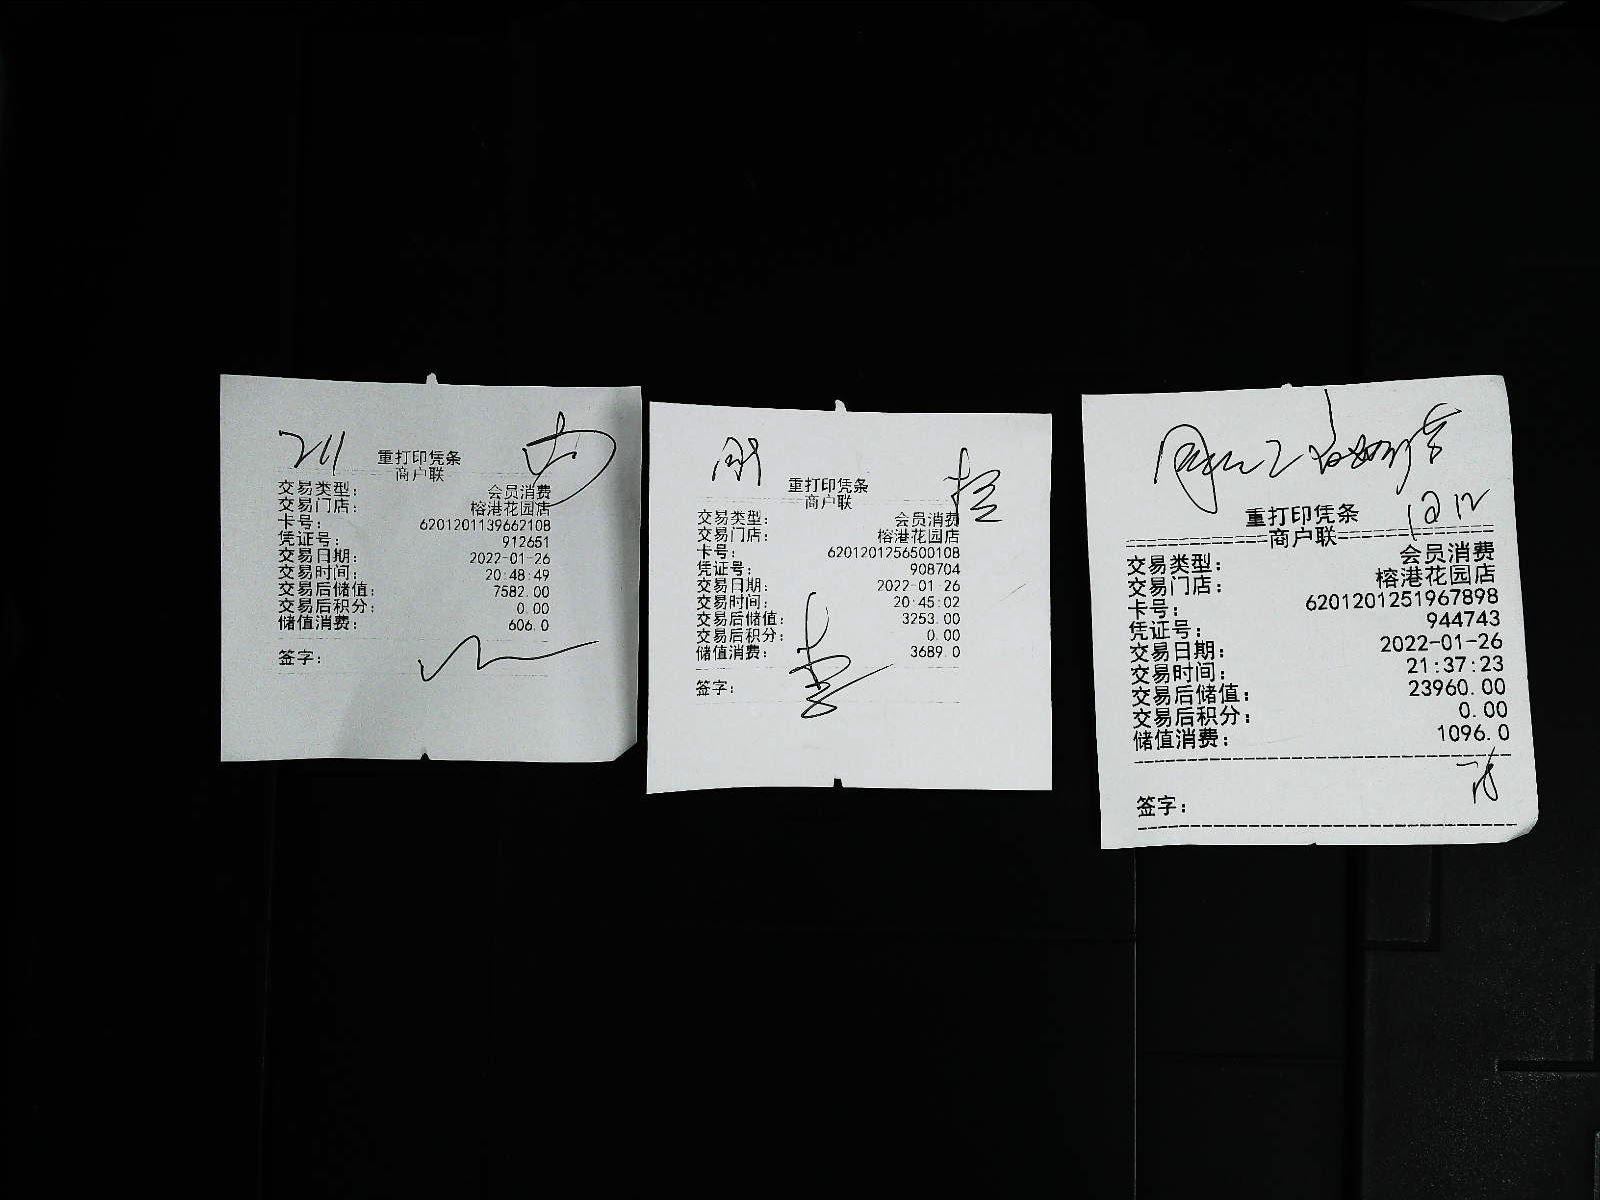 211
重打印凭条
商户联
交易类型： 会员消费
交易门店： 榕港花园店
卡号： 6201201139662108
凭证号： 912651
交易日期： 2022-01-26
交易时间： 20:48:49
交易后储值： 7582.00
交易后积分： 0.00
储值消费： 606.0
签字：
重打印凭条
商户联
交易类型： 会员消费
交易门店： 榕港花园店
卡号： 6201201256500108
凭证号： 908704
交易日期： 2022-01-26
交易时间： 20:45:02
交易后储值： 3253.00
交易后积分： 0.00
储值消费： 3689.0
签字：
重打印凭条
==============商户联==============
交易类型： 会员消费
交易门店： 榕港花园店
卡号： 6201201251967898
凭证号： 944743
交易日期： 2022-01-26
交易时间： 21:37:23
交易后储值： 23960.00
交易后积分： 0.00
储值消费： 1096.0
签字：